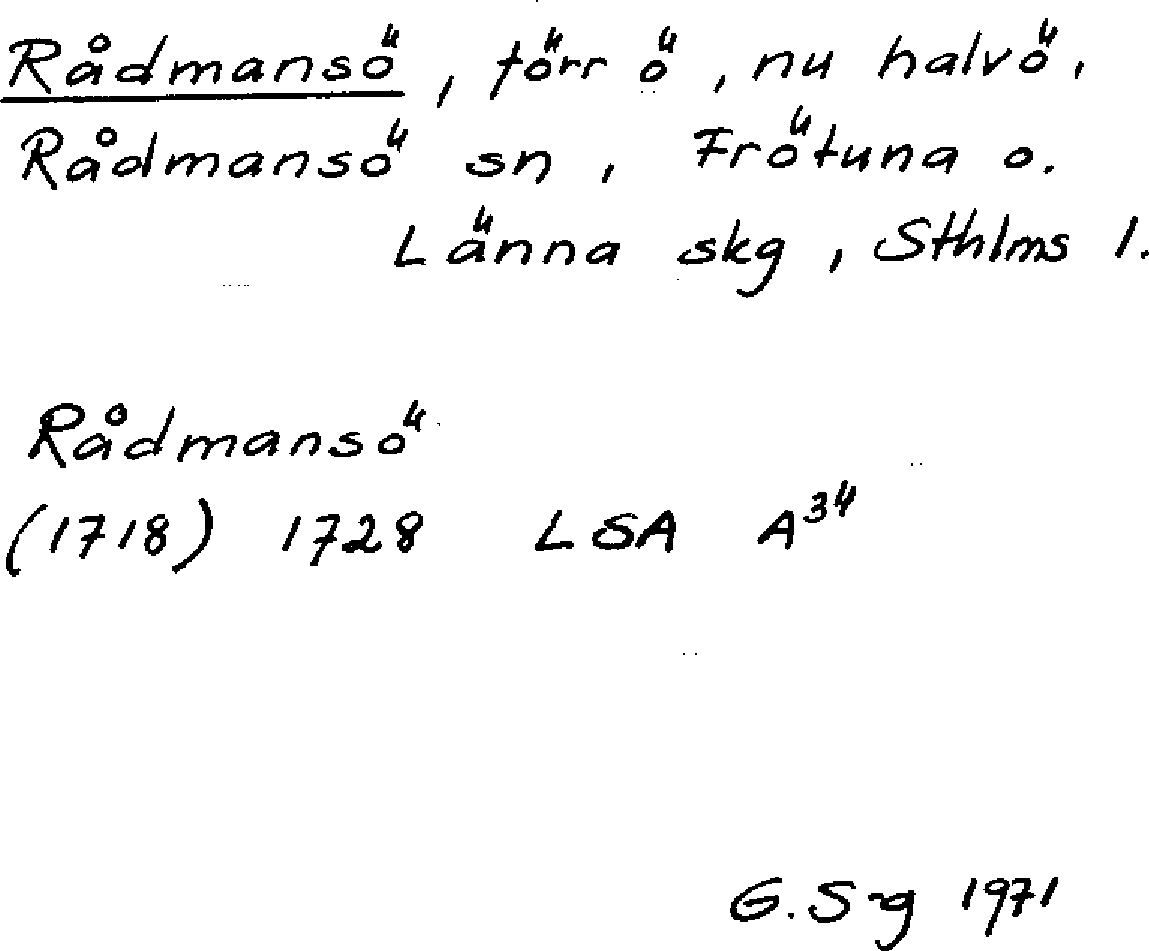 Rådmansö, förr ö, nu halvö,
Rådmansö sn, Frötuna o.
Länna skg, Sthlms l.
Rådmansö
(1718) 1728 LSA A³⁴
G. S-g 1971